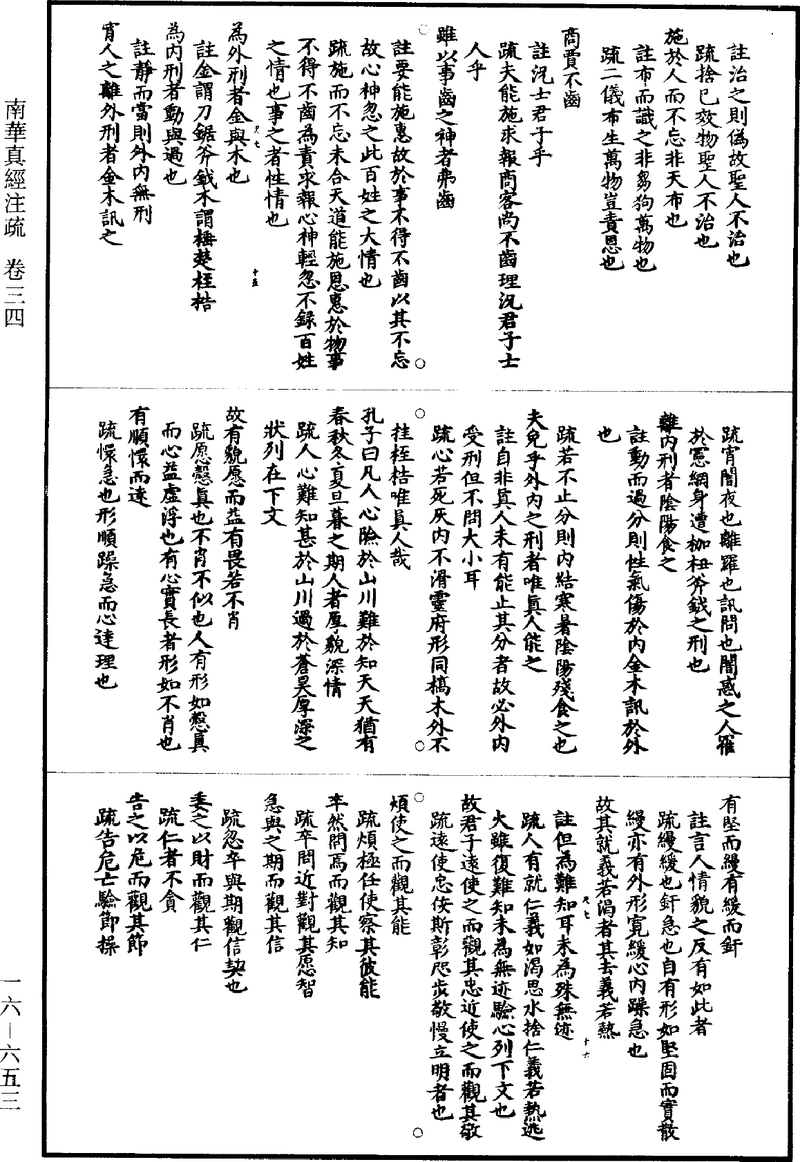 註治之則偽故聖人不治也
疏捨己效物聖人不治也
施於人而不忘非天布也
註布而識之非芻狗萬物也
疏二儀布生萬物豈責恩也
商賈不齒
註況士君子乎
疏夫能施求報商客尚不齒理況君子士
人乎
雖以事齒之神者弗齒
註要能施惠故於事不得不齒以其不忘
故心神忽之此百姓之大情也
疏施而不忘未合天道能施恩惠於物事
不得不齒為責求報心神輕忽不錄百姓
之情也事之者性情也
為外刑者金與木也
註金謂刀鋸斧鉞木謂棰楚桎梏
為內刑者動與過也
註靜而當則外內無刑
宵人之離外刑者金木訊之
疏宵闇夜也離羅也訊問也闇惑之人罹
於憲網身遭枷杻斧鉞之刑也
離內刑者陰陽食之
註動而過分則性氣傷於內金木訊於外
也
疏若不止分則內結寒暑陰陽殘食之也
夫免乎外內之刑者唯真人能之
註自非真人未有能止其分者故必外內
受刑但不問大小耳
疏心若死灰內不滑靈府形同槁木外不
挂桎梏唯真人哉
孔子曰凡人心險於山川難於知天天猶有
春秋冬夏旦暮之期人者厚貌深情
疏人心難知甚於山川過於蒼昊厚深之
狀列在下文
故有貌愿而益有畏若不肖
疏愿慤真也不肖不似也人有形如慤真
而心益虛浮也有心實長者形如不肖也
有順懁而達
疏懁急也形順躁急而心達理也
有堅而縵有緩而釬
註言人情貌之反有如此者
疏縵緩也釬急也自有形如堅固而實散
縵亦有外形寬緩心內躁急也
故其就義若渴者其去義若熱
註但為難知耳未為殊無迹
疏人有就仁義如渴思水捨仁義若熱逃
火雖復難知未為無迹驗心列下文也
故君子遠使之而觀其忠近使之而觀其敬
疏遠使忠佞斯彰咫步敬慢立明者也
煩使之而觀其能
疏煩極任使察其彼能
卒然問焉而觀其知
疏卒問近對觀其愿智
急與之期而觀其信
疏忽卒與期觀信契也
委之以財而觀其仁
疏仁者不貪
告之以危而觀其節
疏告危亡驗節操
南華真經注疏 卷三四
一六—六五三